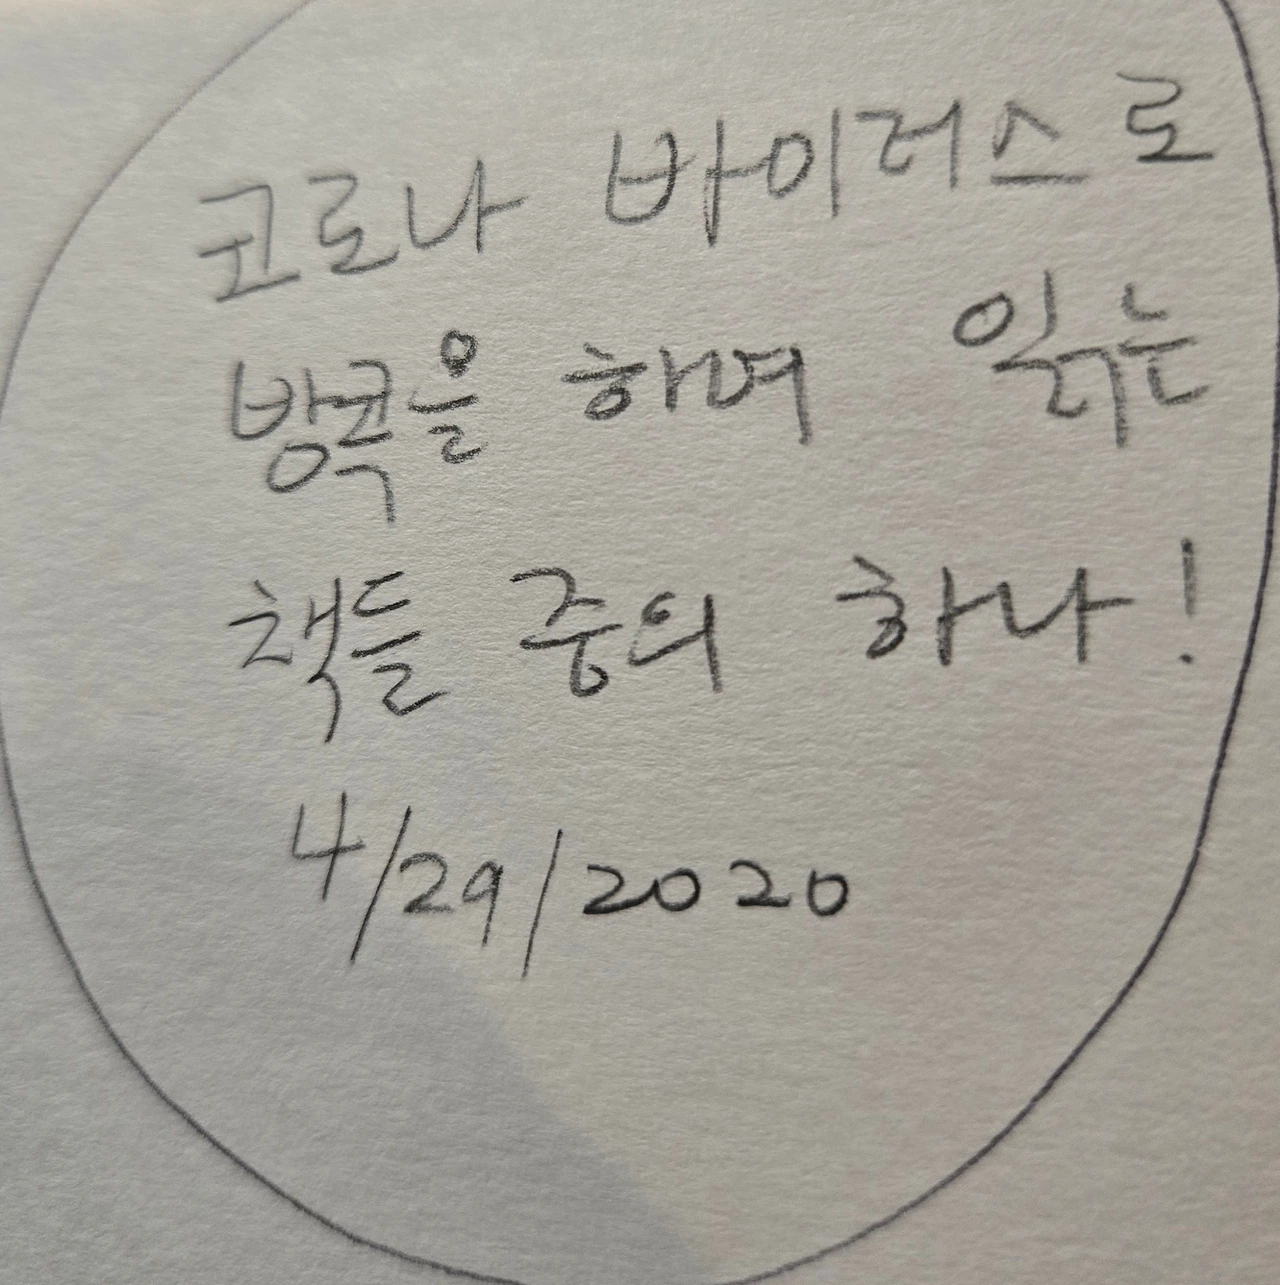 코로나 바이러스로
방콕을 하며 읽는
책들 중의 하나!
4/29/2020